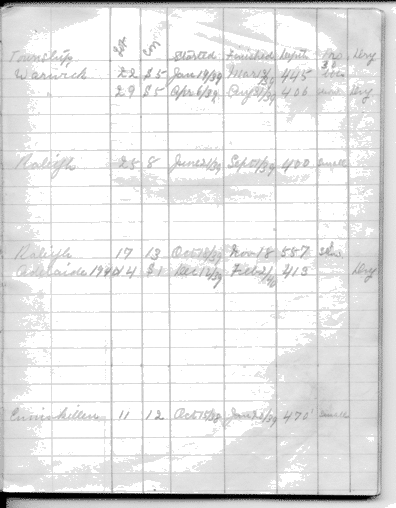 Township Lot Con Started Finished Depth Pro Dry
Warwick 22 S5 Jan 19/39 Mar 13/39 445 3 bbls
" 29 S5 Apr 6/39 31/39 406 non Dry
Raleigh 25 8 June 21/39 Sept 31/39 400 small
Raleigh 17 13 Oct 18/39 Nov 18 557 3
Adelaide 1940 14 S1 Dec 12/39 Feb 2/40 413 Dry
Enniskillen 11 12 Oct 15/38 June 23/39 470' small